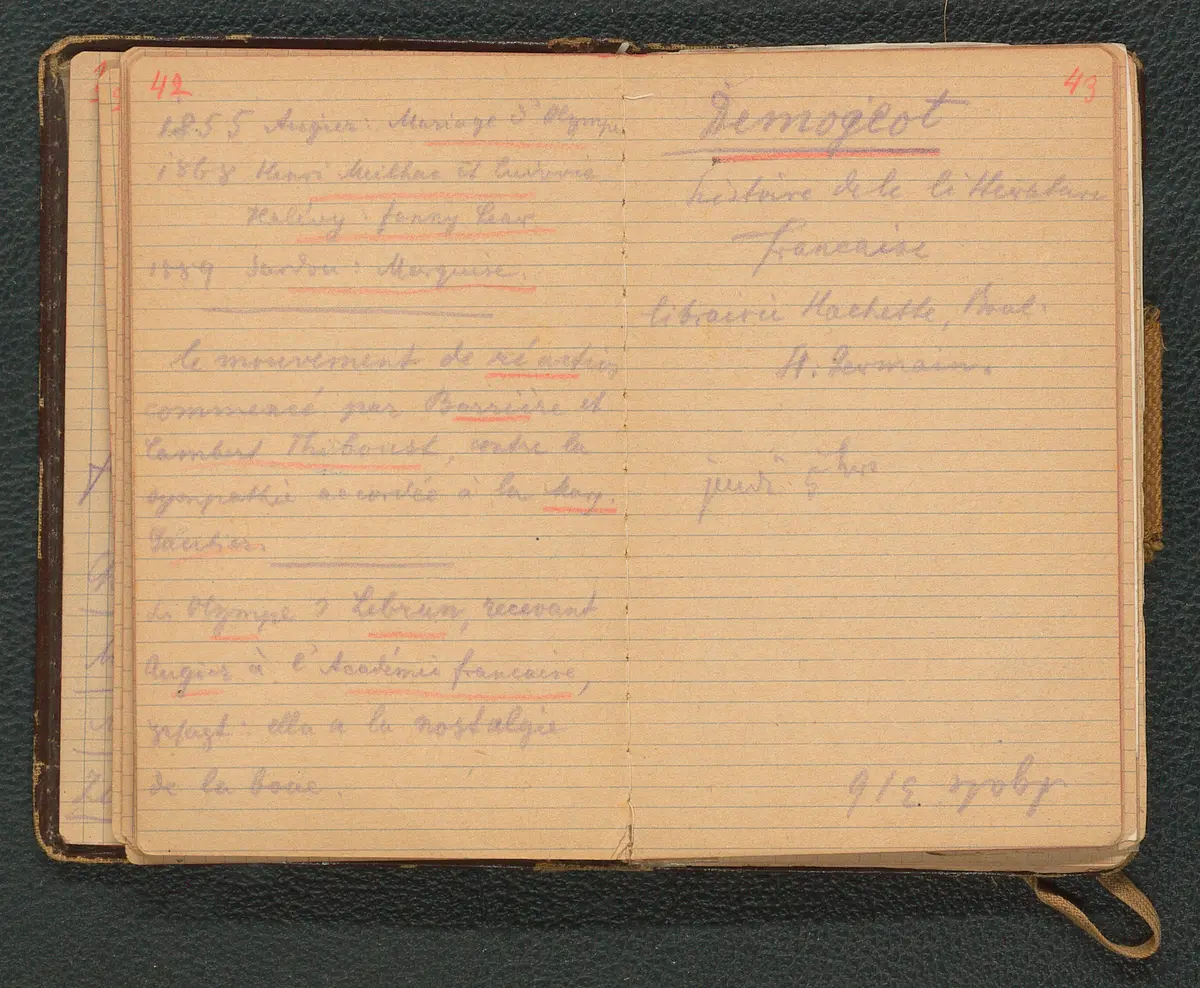 42
1855 Augier: Mariage d'Olympe
1868 Henri Meilhac et Ludovic
Halévy: fanny Lear
1889 Sardou: Marquise.
le mouvement de réaction
commencé par Barrière et
Lambert Thiboust, contre la
sympathie accordée à la Marg.
Gautier.
Olympe Lebrun, recevant
Augier à l'Académie francaise,
: elle a la nostalgie
de la boue
43
Demogeot
histoire de le litterature
francaise
librairie Hachette,
St. Germain.
jeudi 5